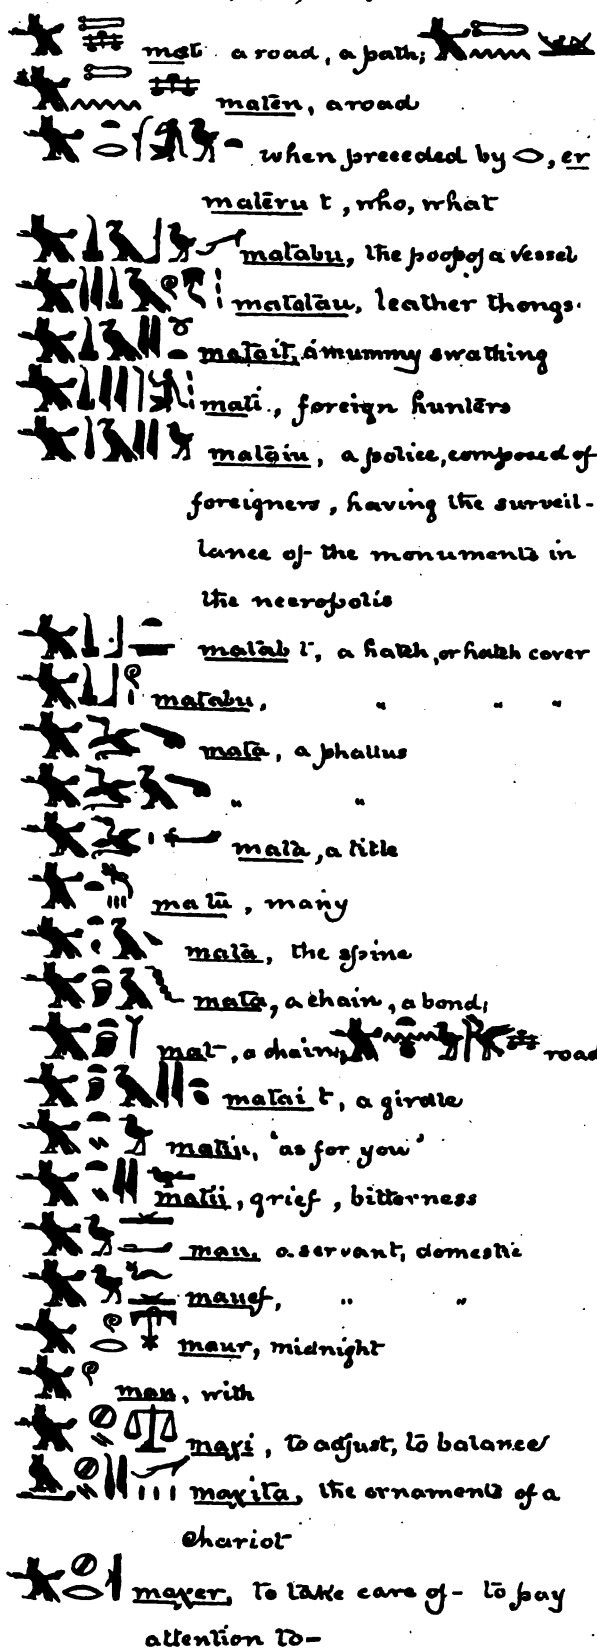 mat a road, a path;
maten, a road
when preceded by , er
materu t, who, what
matabu, the poop of a vessel
matatau, leather thongs.
matait, a mummy swathing
mati, foreign hunters
mataiu, a police, composed of
foreigners, having the surveil-
lance of the monuments in
the necropolis
matab t, a hatch, or hatch cover
matabu, " " "
mata, a phallus
" "
mata, a title
ma tu, many
mata, the spine
mata, a chain, a bond;
mat, a chain; road
matai t, a girdle
'as for you'
matii, grief, bitterness
mau, a servant, domestic
mauef, " "
maur, midnight
mau, with
maχi, to adjust, to balance
maχita, the ornaments of a
chariot
maχer, to take care of - to pay
attention to-